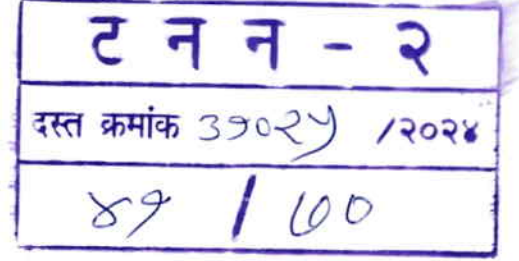 ट न न - २
दस्त क्रमांक ३१०२५ /२०२४
४१ / ७०